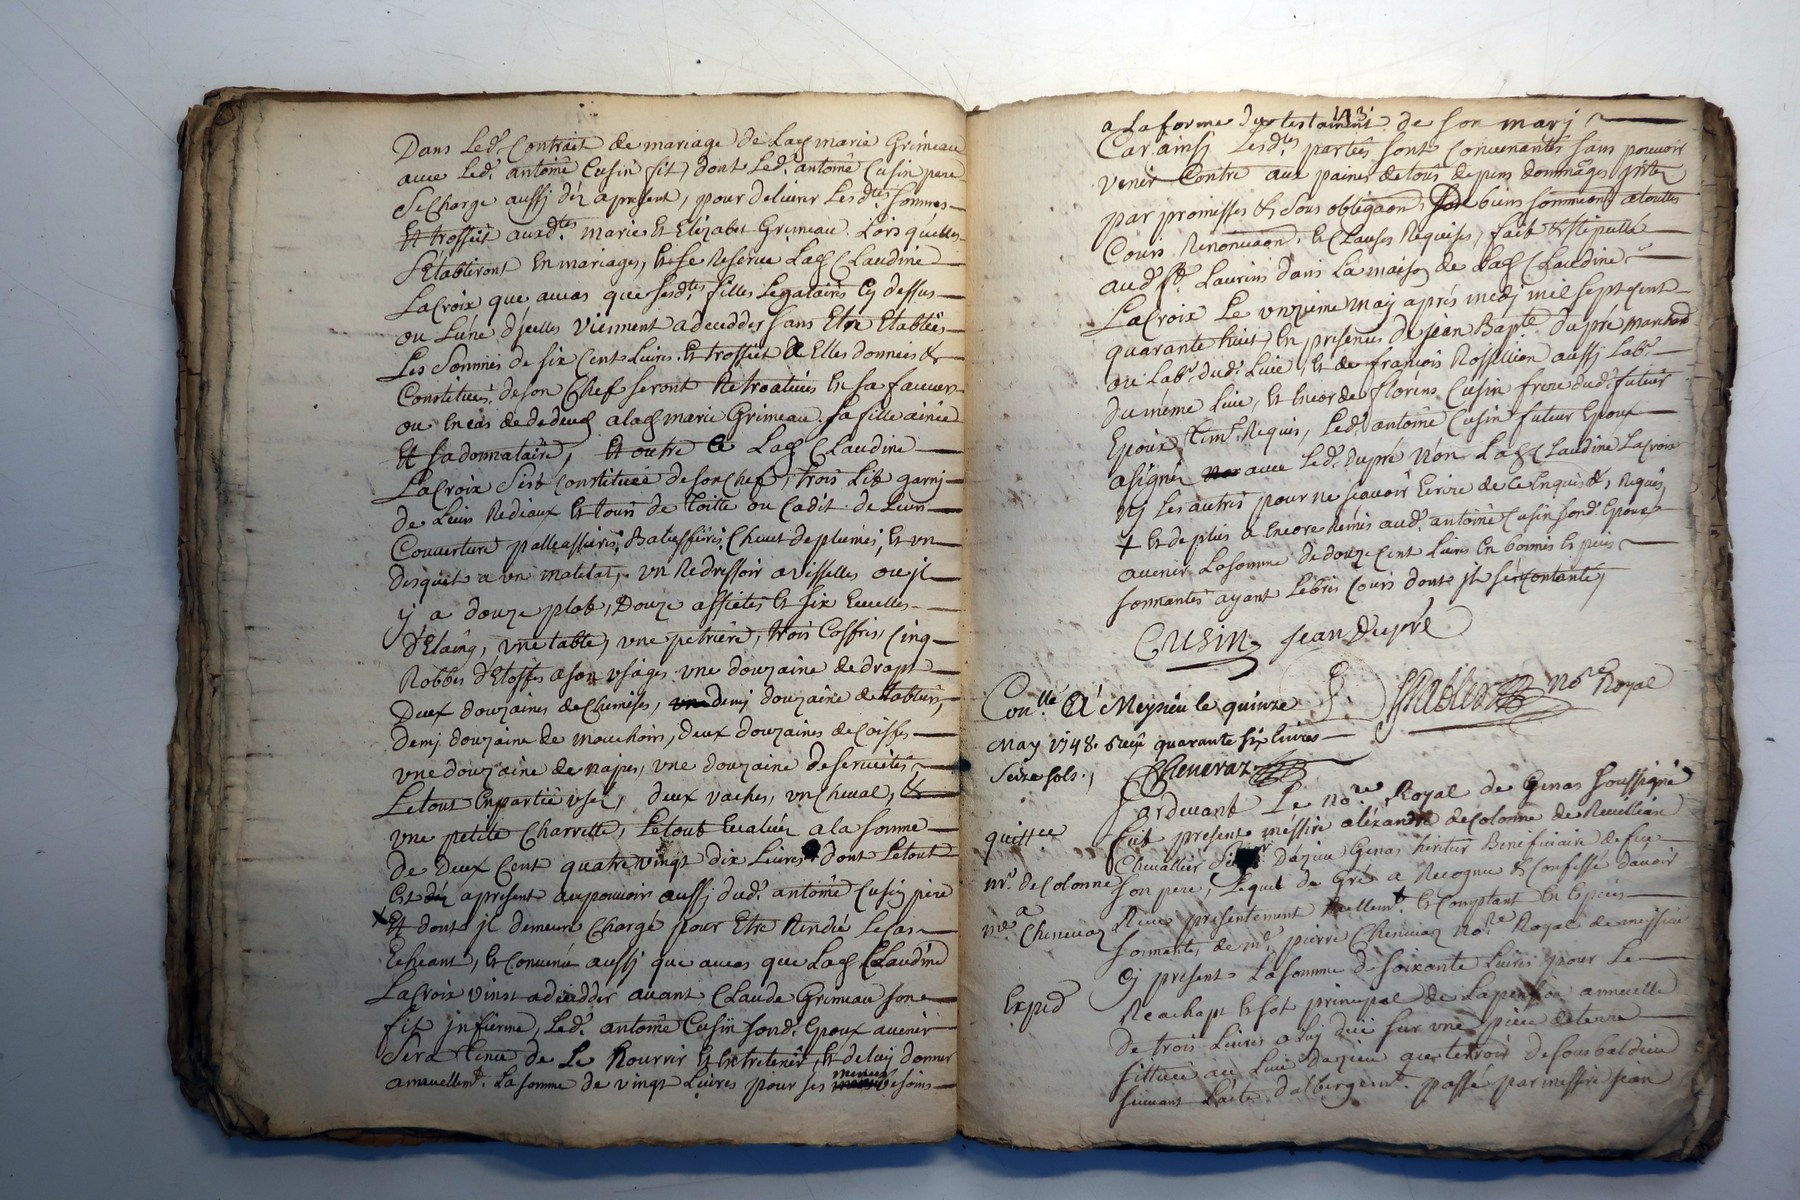 Dans Led. Contrait de mariage de Lad marie Grimeau
avec Led. antoine Cusin fit, dont Led. antoine Cusin pere
Se Charge aussj déz apresent, pour delivrer Lesd.tes Sommes
Et trosseis auxd.tes maries Et Elizabet Grimeau. Lors qu'elles
S'Etabliront En mariages, Et se Reserve Lad Claudine
LaCroix que aucas que sesd.tes filles Legatairis Cy dessus
ou L'une d'jcelles viennent a decedder sans Etre Etablies
Les Sommes de six Cent Livres Et trosseit a Elles données &
Constituéz, de son Chef seront Retroativés En sa faveur
ou En cas de dedeué a lad marie Grimeau. sa fille ainée
Et sa donnataire, Et outre Ce Lad Claudine
LaCroix S'est Constituée de son Chef, trois Lit garnj
de Leurs Rediaux Et tours de toitte ou Cadit. de Leurs
Couverture palleassieris, Batassieris, Chevet de plumes, Et vn
desquit a vn matelat, vn Redressoir a vissettes ou jl
y a douze plat, Douze assietes Et six Ecuelles
d'Etaing, vne table, vne petriere, trois Coffris, Cinq
Robbes d'Etoffes a son vsage. vne douzaine de draps
Deux douzaines de Chemises, demj douzaine de tabliers,
Demj douzaine de mouchoirs, deux douzaines de Coiffes
vne douzaine de napes, vne douzaine de serviettes,
Letout En partie vsez, deux vaches, vn Cheval, &
vne petite Charrette, Letout Evaluéz a la somme
de deux Cent quatre vingt dix Livres dont Letout
Est déz apresent au pouvoir aussj dud. antoine Cusin pére
X Et dont jl demeure Chargé pour Etre Rendu Le cas
Echeant, Et Convenu aussj que aucas que Lad Claudine
LaCroix vinst a decedder avant Claude Grimeau son
fit jnfirme, Led. antoine Cusin sond. Epoux avenir
Sera tenu de Le Nourrir Et Entretenir, Et de luy donner
annuellemt. La somme de vingt Livres pour ses menus besoins
1473
a La forme du testament de son marj
Car ainsj Lesd.tes parties sont Convenantes sans pouvoir
venir Contre aux paines de tous depens dommages jnterz
par promesses & sous obligaon, biens sommeon atouttes
Cours Renonciaon, Et Clauses Requises, fait & stipullé
aud. St. Laurins dans La maison de Lad Claudine
LaCroix Le vnzieme May aprés midj mil sept cent
quarante huit En presence de jean Bapte dupré marchand
ou Labr. dud. Lieu, Et de françois Rossillion aussj Labr.
du même Lieu, Et Encor de florens Cusin frere dud. futur
Epoux témt. Requis, Led. antoine Cusin futur Epoux
a signéz avec Led. dupré Nón Lad Claudine LaCroix
Nj Les autres pour ne sçavoir Ecrire de Ce Enquis &, Requis,
X Et de plus a Encore Remis aud. antoine Cusin sond. Epoux
avenir La somme de douze Cent Livres En bonnes Especes
sonnantes ayant Lebris Cours dont jl se Contante,
CUSIN Jean Dupré
not. Royal
Conlle A Meyzieu le quinze
May 1748. Recu quarante six livres
Seize sols.,
Cheneraz
Pardevant Le Nore. Royal de Genas soussigné
quittce fut present méssire alexandre de Colonne de
Chevallier Genas heritier Beneficiaire de feu
mr. de Colonne son pere, Lequel de Gré a Recogneu & Confessé d'avoir
a Receu presentement Reellemt. Et Comptant En Especes
me. Chenevaz sonnantes, de me. pierre Chenevaz Nore. Royal de meyzieu
Cj present La somme de soixante Livres pour Le
Expedé Reachapt Et sot principal de La pension annuelle
de trois Livres a Luj dûe sur vne piéce de terre
sittuée au Lieu au terroir de
suivant Lacte d'albergemt. passé par messire jean